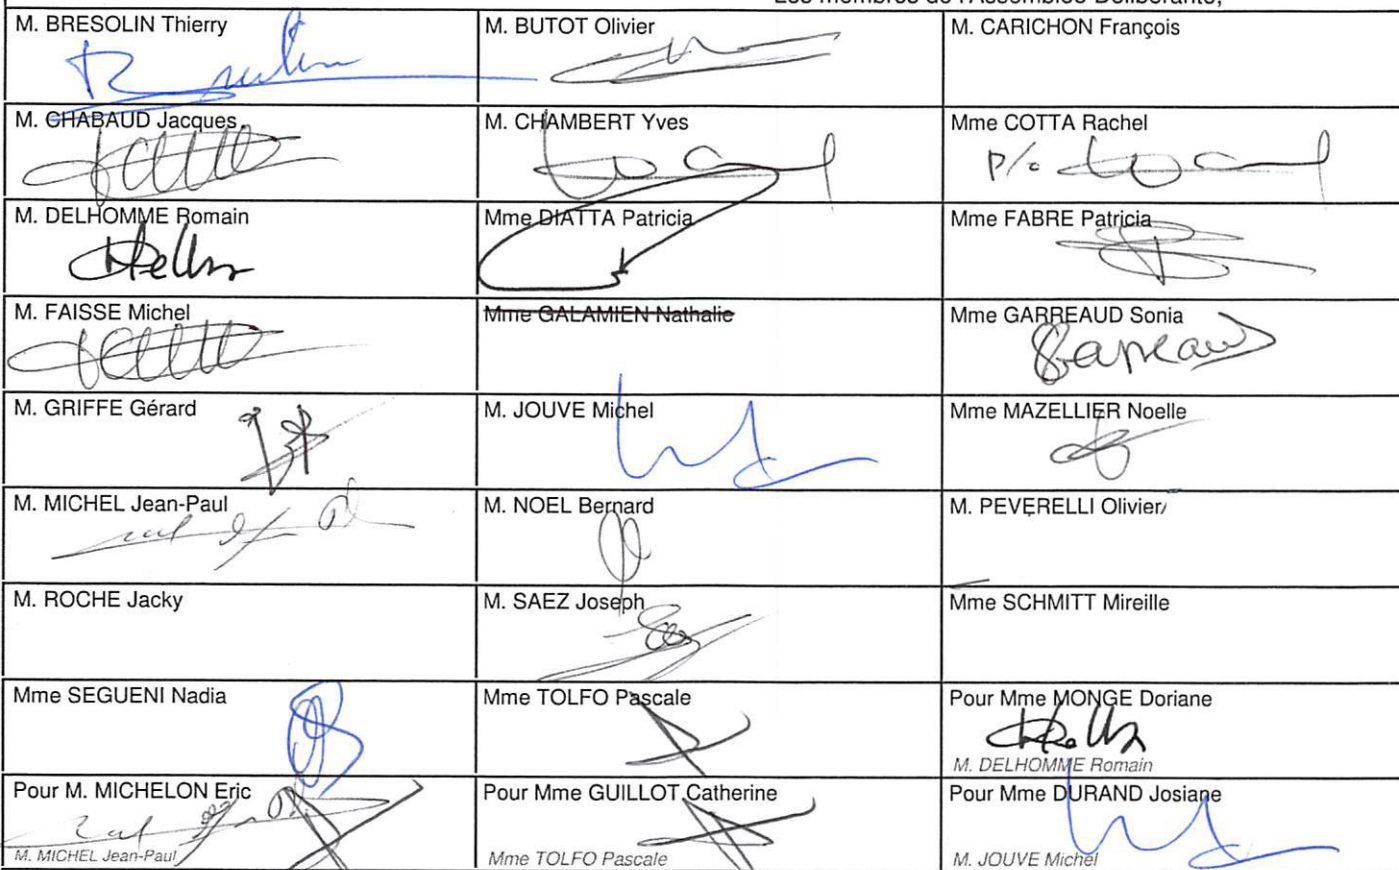 Les membres de l'Assemblée Délibérante,
M. BRESOLIN Thierry
M. BUTOT Olivier
M. CARICHON François
M. CHABAUD Jacques
M. CHAMBERT Yves
Mme COTTA Rachel
P/o
M. DELHOMME Romain
Mme DIATTA Patricia
Mme FABRE Patricia
M. FAISSE Michel
Mme GALAMIEN Nathalie
Mme GARREAUD Sonia
M. GRIFFE Gérard
M. JOUVE Michel
Mme MAZELLIER Noelle
M. MICHEL Jean-Paul
M. NOEL Bernard
M. PEVERELLI Olivier
M. ROCHE Jacky
M. SAEZ Joseph
Mme SCHMITT Mireille
Mme SEGUENI Nadia
Mme TOLFO Pascale
Pour Mme MONGE Doriane
M. DELHOMME Romain
Pour M. MICHELON Eric
M. MICHEL Jean-Paul
Pour Mme GUILLOT Catherine
Mme TOLFO Pascale
Pour Mme DURAND Josiane
M. JOUVE Michel